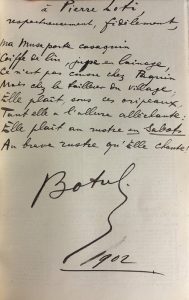 à Pierre Loti,
respectueusement, fidèlement,
ma Muse porte casaquin
Coiffe de lin, jupe en lainage,
Ce n'est pas cousu chez Paquin
Mais chez le tailleur du village;
Elle plaît, sous ces oripeaux,
Tant elle a l'allure alléchante:
Elle plaît au rustre en Sabots
Au brave rustre qu'Elle chante!
Botrel
1902